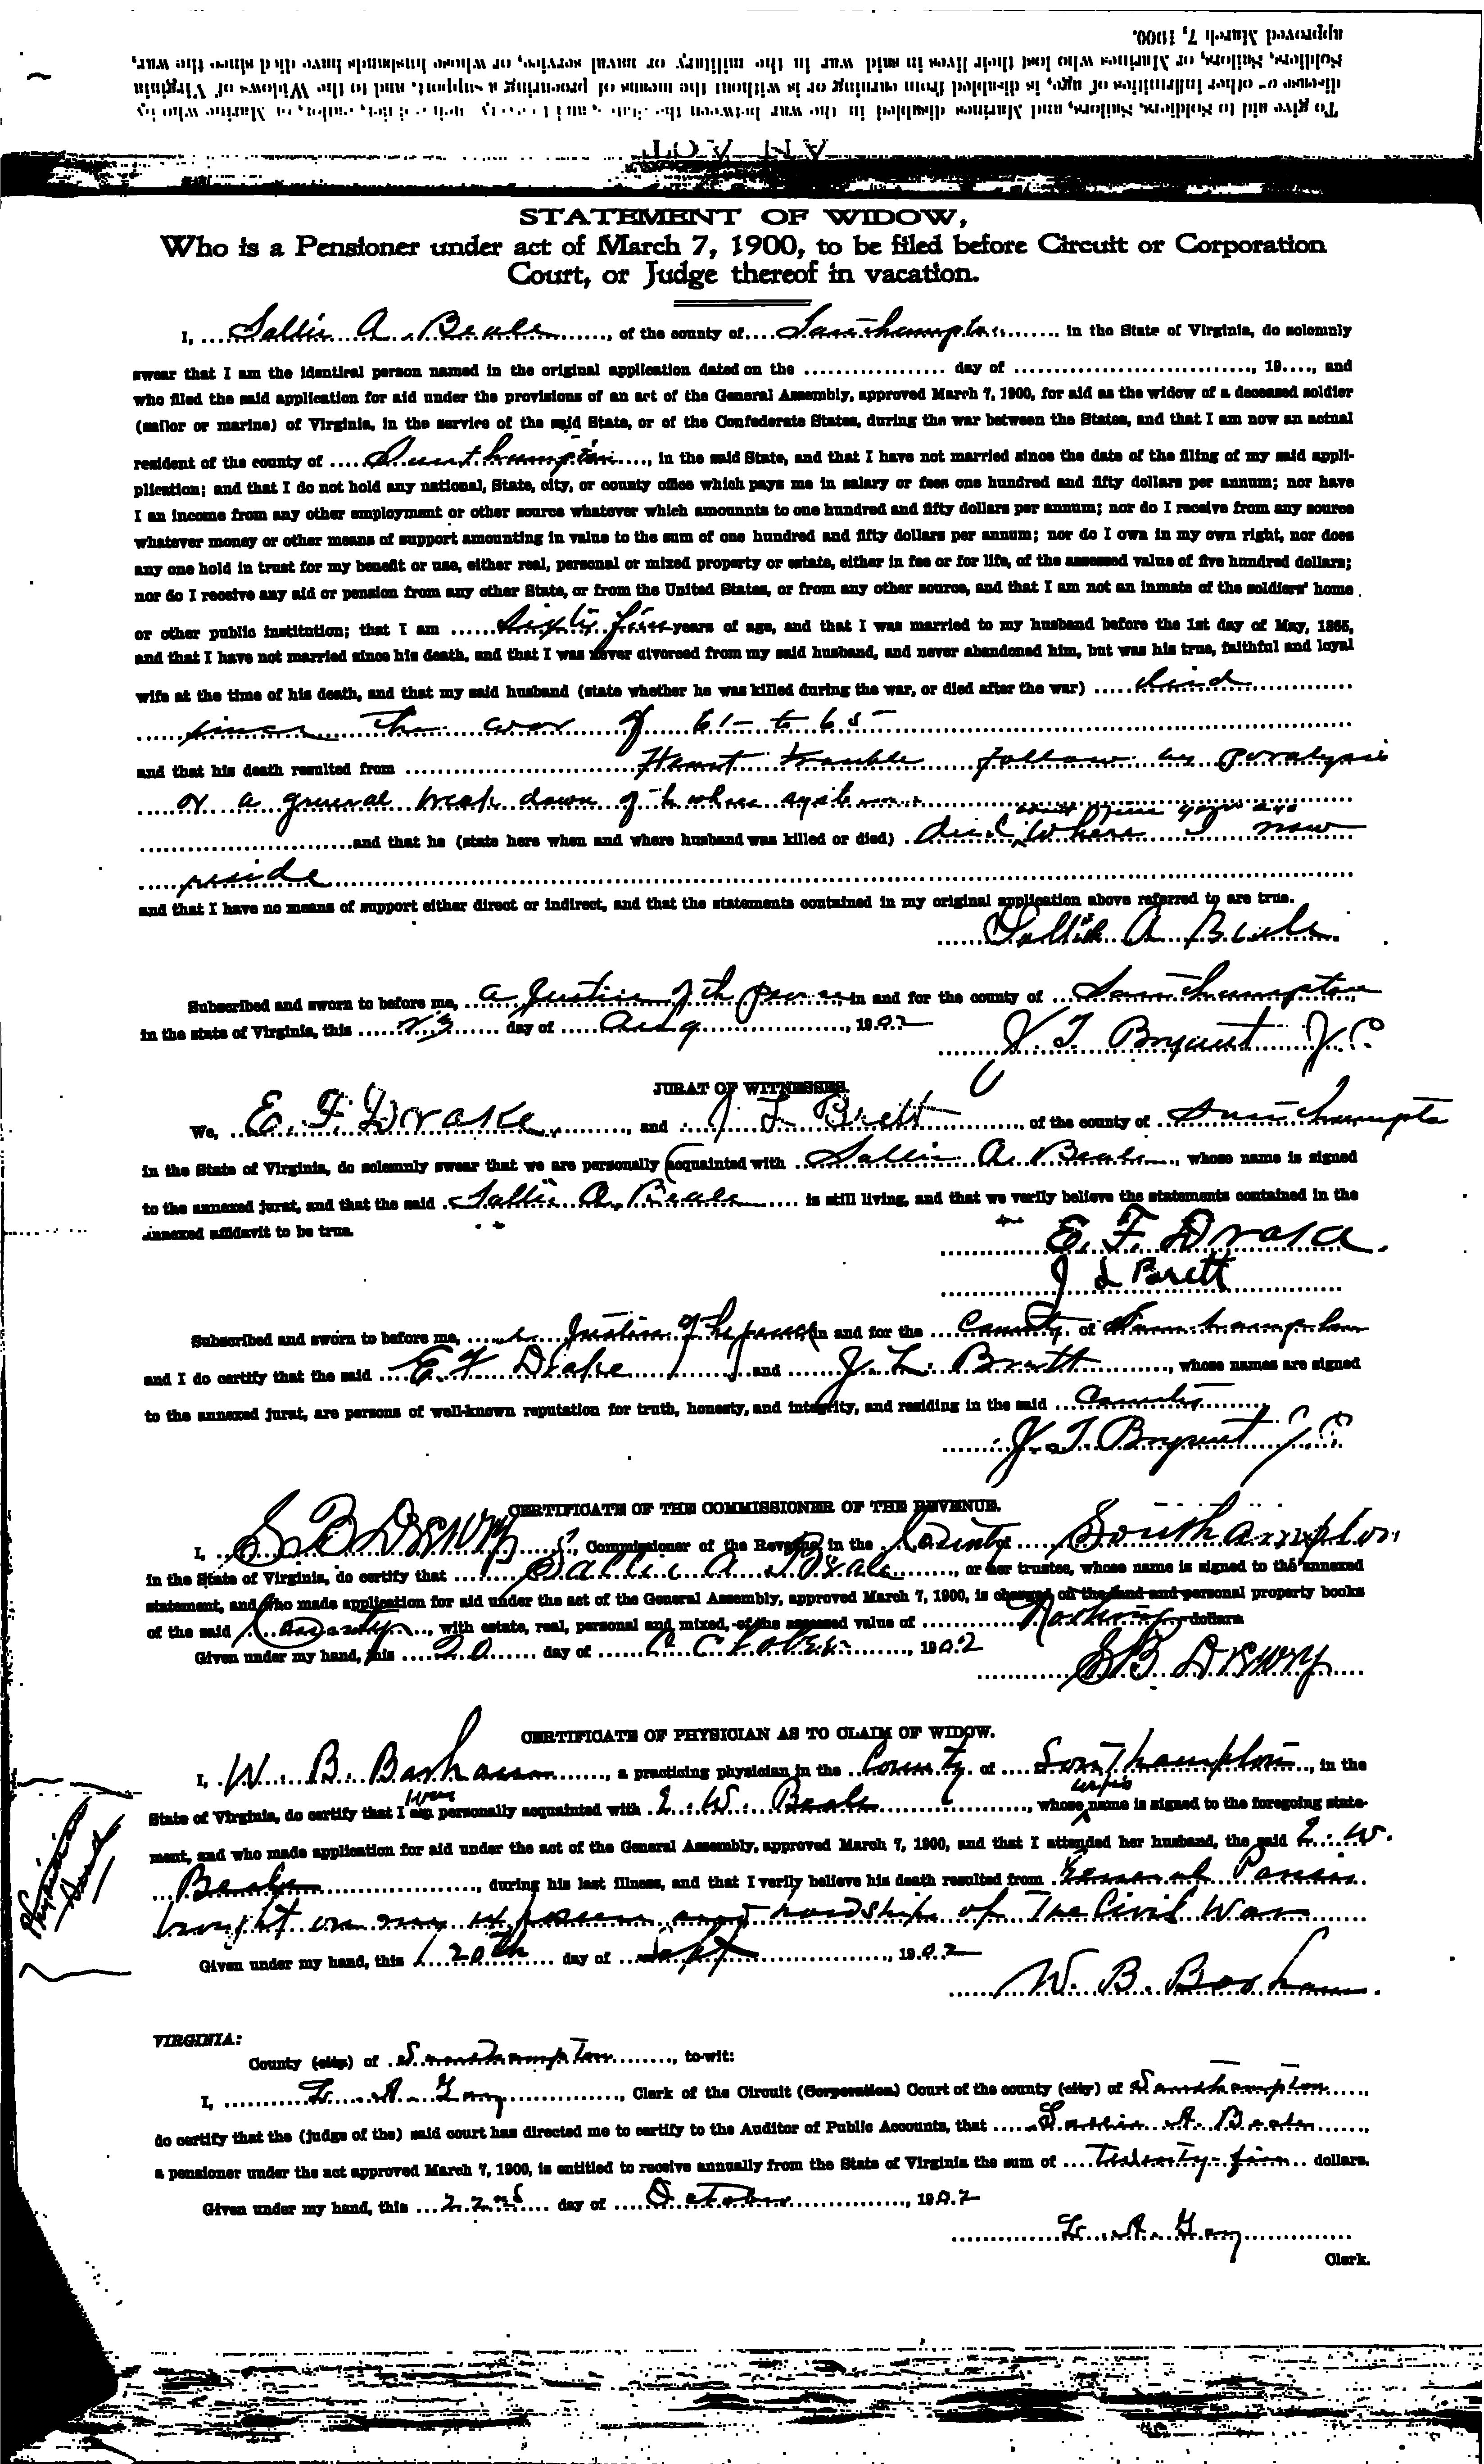 approved March 7, 1900.
Soldiers, Sailors, or Marines who lost their lives in said war in the military or naval service, or whose husbands have did since the war,
disease or other infirmities of age, is disabled from earning or is without the means of procuring a support, and to the Widows of Virginia
To give aid to Soldiers, Sailors, and Marines disabled in the war between the States, and to every soldier, sailor, or Marine who by
AN ACT
STATEMENT OF WIDOW,
Who is a Pensioner under act of March 7, 1900, to be filed before Circuit or Corporation
Court, or Judge thereof in vacation.
I, Sallie A. Beale, of the county of Southampton, in the State of Virginia, do solemnly
swear that I am the identical person named in the original application dated on the ........ day of ........, 19...., and
who filed the said application for aid under the provisions of an act of the General Assembly, approved March 7, 1900, for aid as the widow of a deceased soldier
(sailor or marine) of Virginia, in the service of the said State, or of the Confederate States, during the war between the States, and that I am now an actual
resident of the county of Southampton, in the said State, and that I have not married since the date of the filing of my said appli-
plication; and that I do not hold any national, State, city, or county office which pays me in salary or fees one hundred and fifty dollars per annum; nor have
I an income from any other employment or other source whatever which amounnts to one hundred and fifty dollars per annum; nor do I receive from any source
whatever money or other means of support amounting in value to the sum of one hundred and fifty dollars per annum; nor do I own in my own right, nor does
any one hold in trust for my benefit or use, either real, personal or mixed property or estate, either in fee or for life, of the assessed value of five hundred dollars;
nor do I receive any aid or pension from any other State, or from the United States, or from any other source, and that I am not an inmate of the soldiers' home
or other public institution; that I am Sixty five years of age, and that I was married to my husband before the 1st day of May, 1865,
and that I have not married since his death, and that I was never divorced from my said husband, and never abandoned him, but was his true, faithful and loyal
wife at the time of his death, and that my said husband (state whether he was killed during the war, or died after the war) died
since the war of 61- to 65-
and that his death resulted from Heart trouble follow by paralysis
or a general break down of the whole system
and that he (state here when and where husband was killed or died) died years ago where I now
reside
and that I have no means of support either direct or indirect, and that the statements contained in my original application above referred to are true.
Sallie A Beale
Subscribed and sworn to before me, a Justice of the peace in and for the county of Southampton
in the state of Virginia, this 23 day of Aug, 1902
J. T. Bryant J.P.
JURAT OF WITNESSES.
We, E. F. Drake, and J L Brett, of the county of Southampton
in the State of Virginia, do solemnly swear that we are personally acquainted with Sallie A. Beale, whose name is signed
to the annexed jurat, and that the said Sallie A. Beale is still living, and that we verily believe the statements contained in the
annexed affidavit to be true.
E. F. Drake.
J L Brett
Subscribed and sworn to before me, a Justice of the peace in and for the County of Southampton
and I do certify that the said E. F Drake and J. L. Brett, whose names are signed
to the annexed jurat, are persons of well-known reputation for truth, honesty, and integrity, and residing in the said County
J. T. Bryant J.P.
CERTIFICATE OF THE COMMISSIONER OF THE REVENUE.
I, S B Drewry, Commissioner of the Revenue in the County Southampton
in the State of Virginia, do certify that Sallie A Beale, or her trustee, whose name is signed to the annexed
statement, and who made application for aid under the act of the General Assembly, approved March 7, 1900, is charged on the land and personal property books
of the said County, with estate, real, personal and mixed, of the assessed value of Nothing dollars
Given under my hand, this 20 day of October, 1902
S B Drewry
CERTIFICATE OF PHYSICIAN AS TO CLAIM OF WIDOW.
I, W. B. Barham, a practicing physician in the County of Southampton, in the
State of Virginia, do certify that I am was personally acquainted with E. W. Beale, whose wife's name is signed to the foregoing state-
ment, and who made application for aid under the act of the General Assembly, approved March 7, 1900, and that I attended her husband, the said E. W.
Beale, during his last illness, and that I verily believe his death resulted from General Paresis
brought on by exposure and hardships of The Civil War
Given under my hand, this 20th day of Sept, 1902
W. B. Barham.
Physician
VIRGINIA:
County (city) of Southampton, to-wit:
I, L. A. Gay, Clerk of the Circuit (Corporation) Court of the county (city) of Southampton
do certify that the (judge of the) said court has directed me to certify to the Auditor of Public Accounts, that Sallie A. Beale,
a pensioner under the act approved March 7, 1900, is entitled to receive annually from the State of Virginia the sum of twenty-five dollars.
Given under my hand, this 22nd day of October, 1902
L. A. Gay
Clerk.